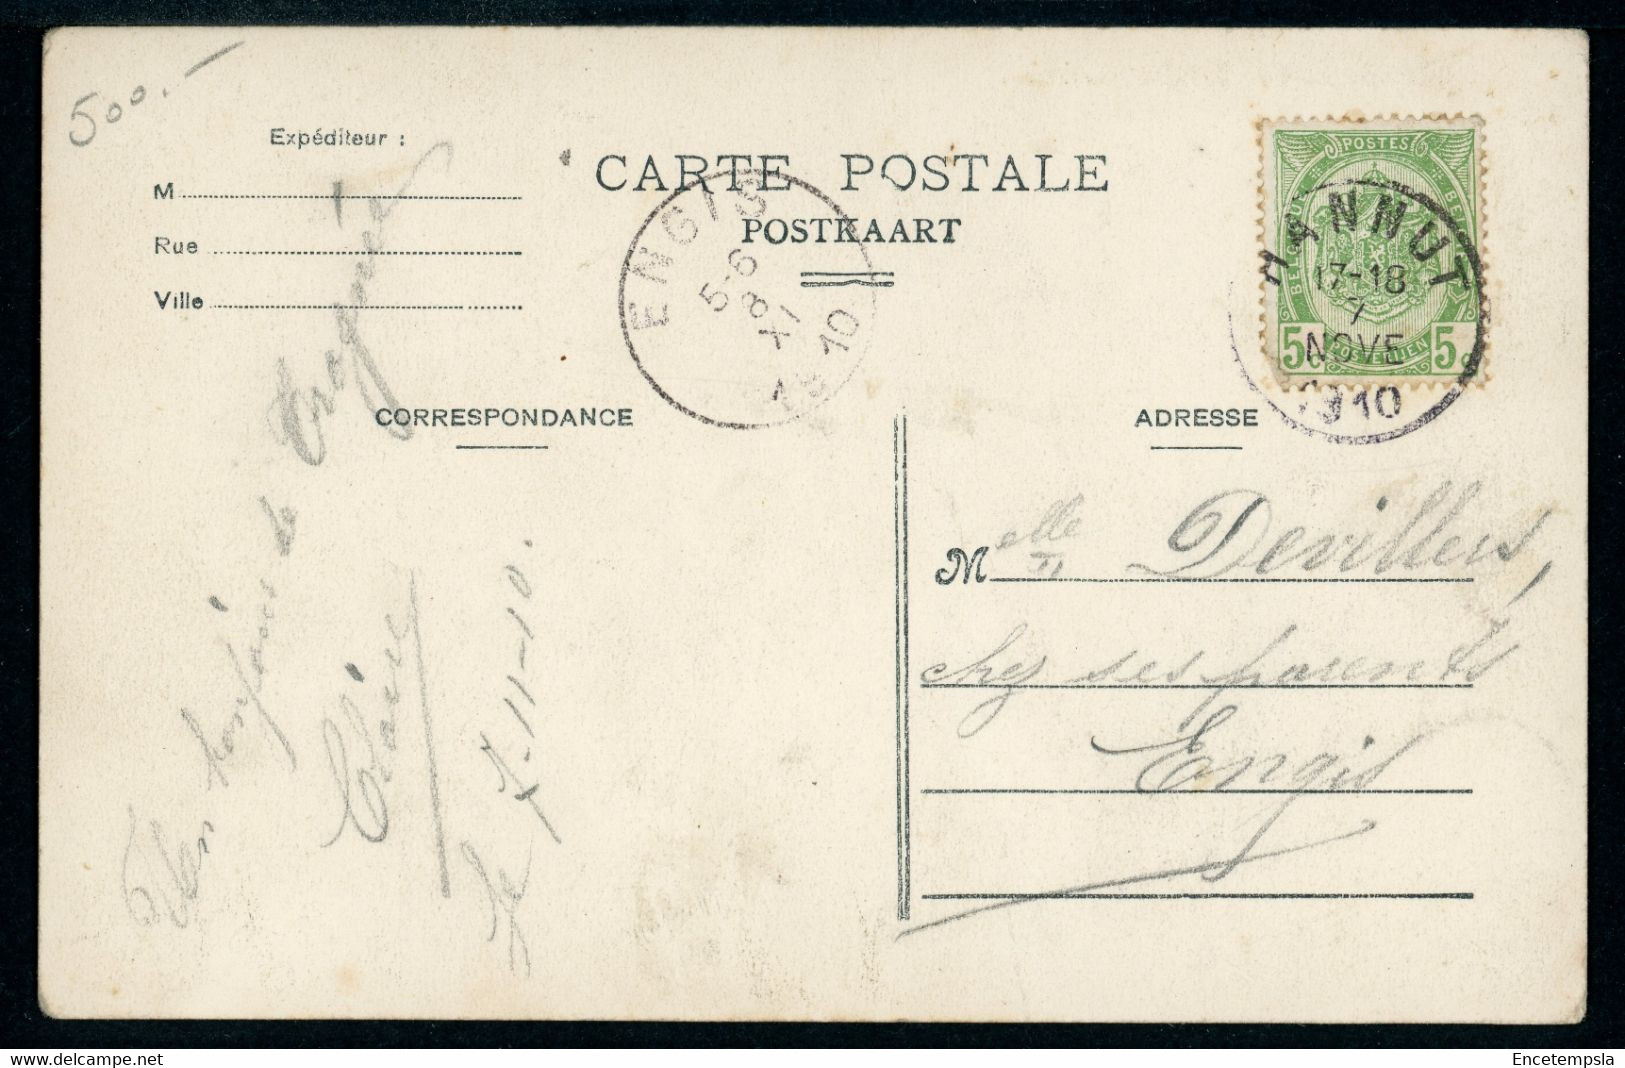 500.-
Expéditeur :
M
Rue
Ville
CARTE POSTALE
POSTKAART
ENGIS
5-6
8
XI
1910
POSTES
BELGIQUE
BELGIË
5c
POSTERIJEN
5c
HANNUT
17-18
7
NOVE
1910
CORRESPONDANCE
ADRESSE
Melle Devillers,
chez ses parents
Engis
Claire
le 7-11-10.
Encetempsla